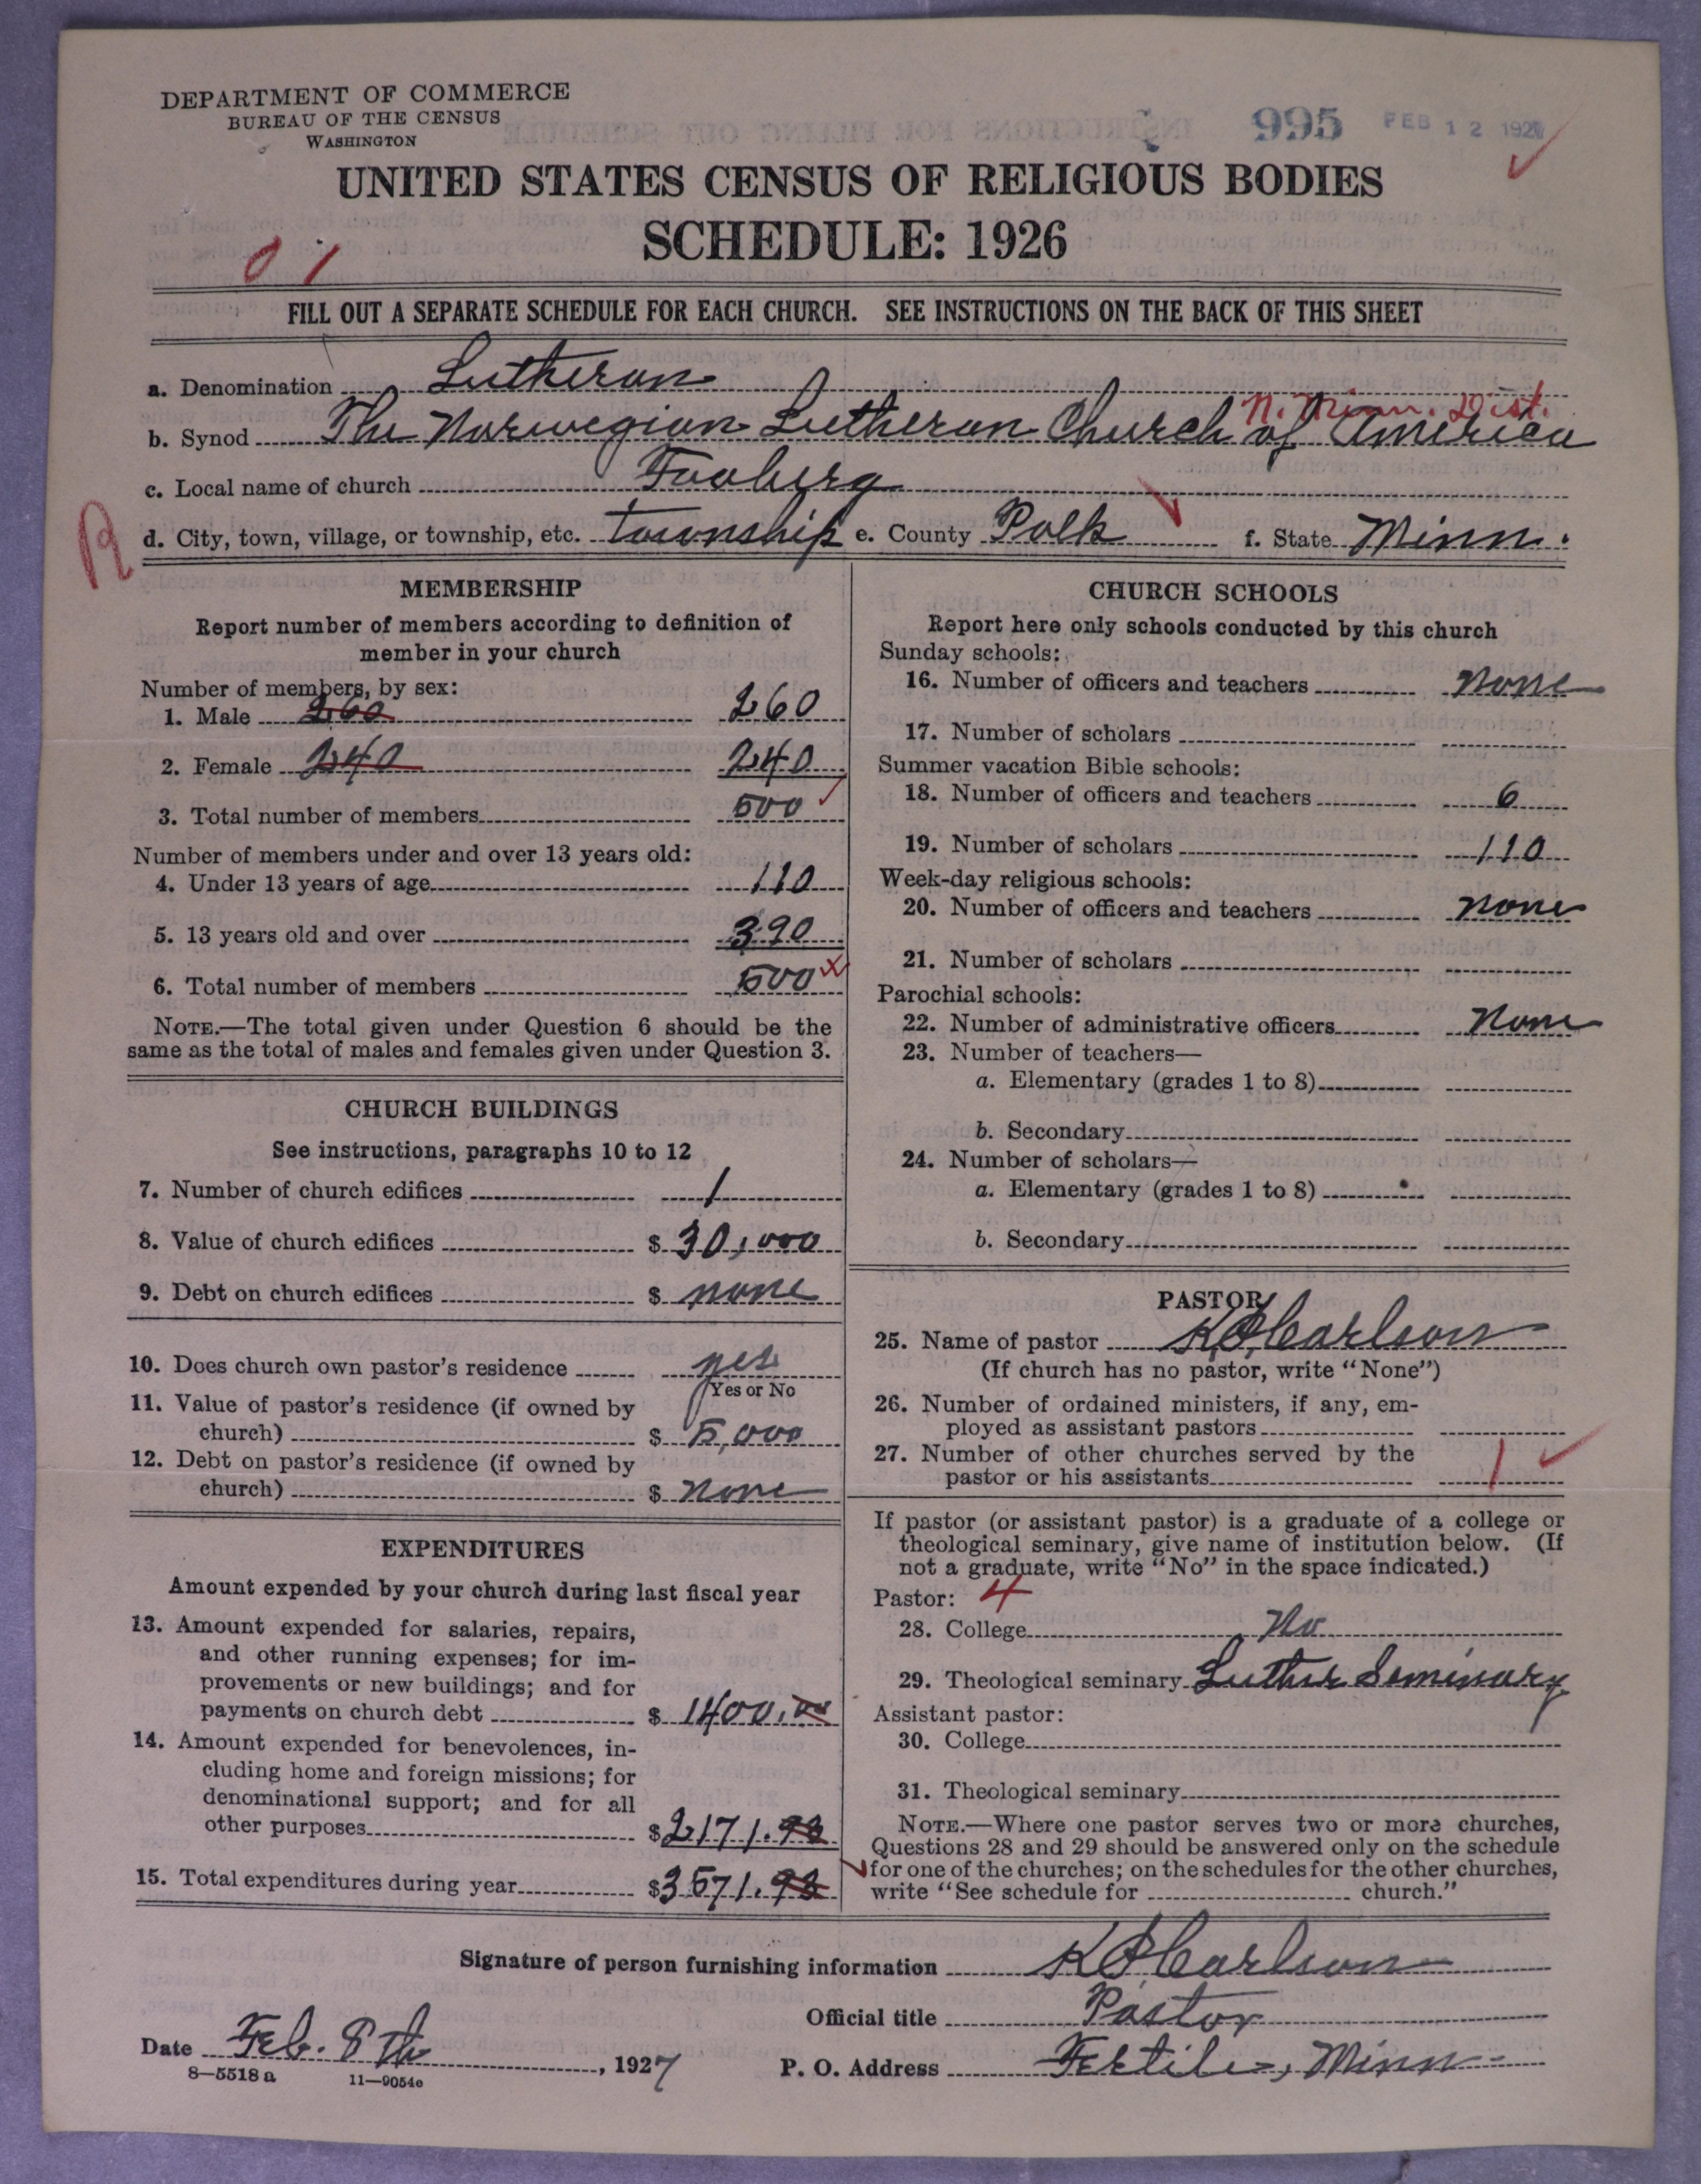 DEPARTMENT OF COMMERCE
BUREAU OF THE CENSUS
WASHINGTON
995 FEB 12 1927
UNITED STATES CENSUS OF RELIGIOUS BODIES
SCHEDULE: 1926
0 1
FILL OUT A SEPARATE SCHEDULE FOR EACH CHURCH. SEE INSTRUCTIONS ON THE BACK OF THIS SHEET
a. Denomination Lutheran
N. Minn. Dist.
b. Synod The Norwegian Lutheran Church of America
c. Local name of church Faaberg
R
d. City, town, village, or township, etc. township e. County Polk f. State Minn.
MEMBERSHIP
Report number of members according to definition of
member in your church
Number of members, by sex:
1. Male 260 260
2. Female 240 240
3. Total number of members 500
Number of members under and over 13 years old:
4. Under 13 years of age 110
5. 13 years old and over 390
6. Total number of members 500
NOTE.—The total given under Question 6 should be the
same as the total of males and females given under Question 3.
CHURCH BUILDINGS
See instructions, paragraphs 10 to 12
7. Number of church edifices 1
8. Value of church edifices $ 30,000
9. Debt on church edifices $ none
10. Does church own pastor's residence yes
Yes or No
11. Value of pastor's residence (if owned by
church) $ 5,000
12. Debt on pastor's residence (if owned by
church) $ none
EXPENDITURES
Amount expended by your church during last fiscal year
13. Amount expended for salaries, repairs,
and other running expenses; for im-
provements or new buildings; and for
payments on church debt $ 1400.00
14. Amount expended for benevolences, in-
cluding home and foreign missions; for
denominational support; and for all
other purposes $2171.98
15. Total expenditures during year $3571.98
CHURCH SCHOOLS
Report here only schools conducted by this church
Sunday schools:
16. Number of officers and teachers None
17. Number of scholars
Summer vacation Bible schools:
18. Number of officers and teachers 6
19. Number of scholars 110
Week-day religious schools:
20. Number of officers and teachers none
21. Number of scholars
Parochial schools:
22. Number of administrative officers None
23. Number of teachers—
a. Elementary (grades 1 to 8)
b. Secondary
24. Number of scholars—
a. Elementary (grades 1 to 8)
b. Secondary
PASTOR
25. Name of pastor K O Carlson
(If church has no pastor, write "None")
26. Number of ordained ministers, if any, em-
ployed as assistant pastors
27. Number of other churches served by the
pastor or his assistants 1
If pastor (or assistant pastor) is a graduate of a college or
theological seminary, give name of institution below. (If
not a graduate, write "No" in the space indicated.)
Pastor: 4
28. College No
29. Theological seminary Luther Seminary
Assistant pastor:
30. College
31. Theological seminary
NOTE.—Where one pastor serves two or more churches,
Questions 28 and 29 should be answered only on the schedule
for one of the churches; on the schedules for the other churches,
write "See schedule for church."
Signature of person furnishing information K O Carlson
Official title Pastor
Date Feb. 8th, 1927
P. O. Address Fertile, Minn
8—5518 a 11—9054e